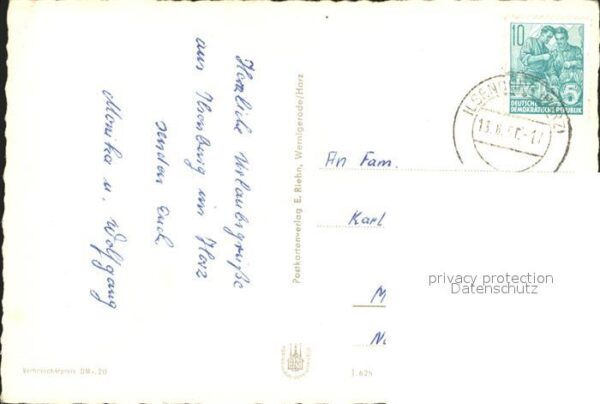 Herzliche Urlaubsgrüße
aus Ilsenburg im Harz
senden Euch
Monika u. Wolfgang
Postkartenverlag E. Riehn, Wernigerode/Harz
Verbraucherpreis DM -,20
10
5
DEUTSCHE
DEMOKRATISCHE REPUBLIK
An Fam.
Karl
M
privacy protection
Datenschutz